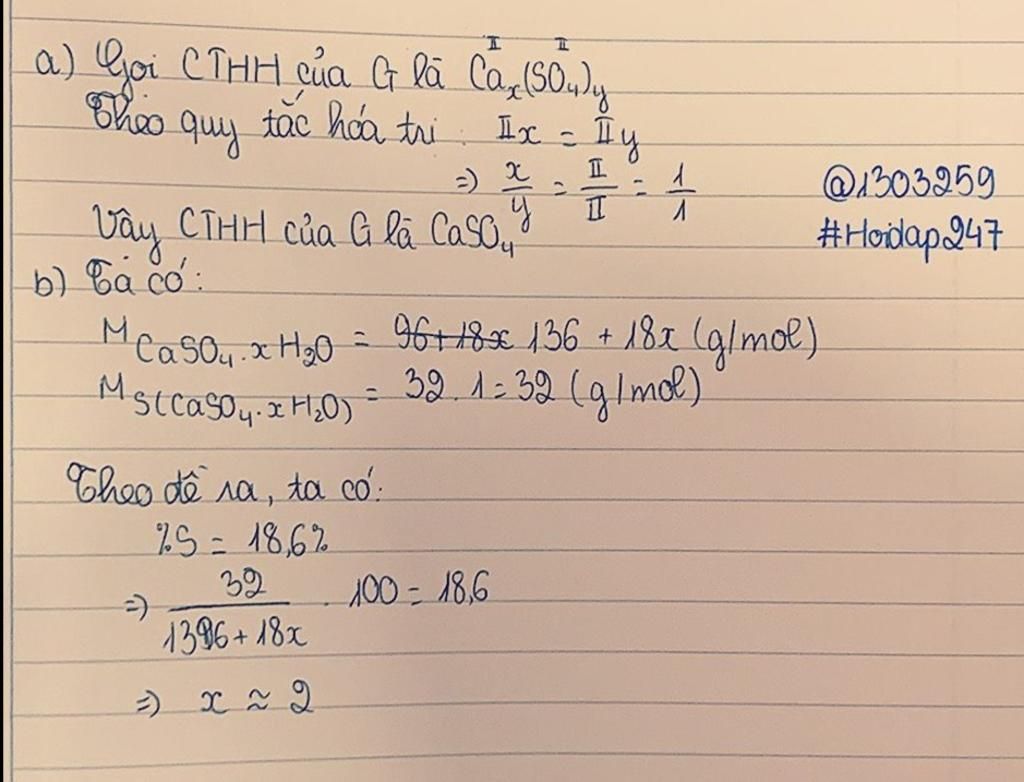 a) Gọi CTHH của G là Caₓ^II(SO₄)ᵧ^II
Theo quy tắc hóa trị: IIx = IIy
=> x/y = II/II = 1/1
@1303259
Vậy CTHH của G là CaSO₄
#Hoidap247
b) Ta có:
M CaSO₄.xH₂O = 96+18x 136 + 18x (g/mol)
M S(CaSO₄.xH₂O) = 32.1=32 (g/mol)
Theo đề ra, ta có:
%S = 18,6%
=> 32/(136+18x) . 100 = 18,6
=> x ≈ 2